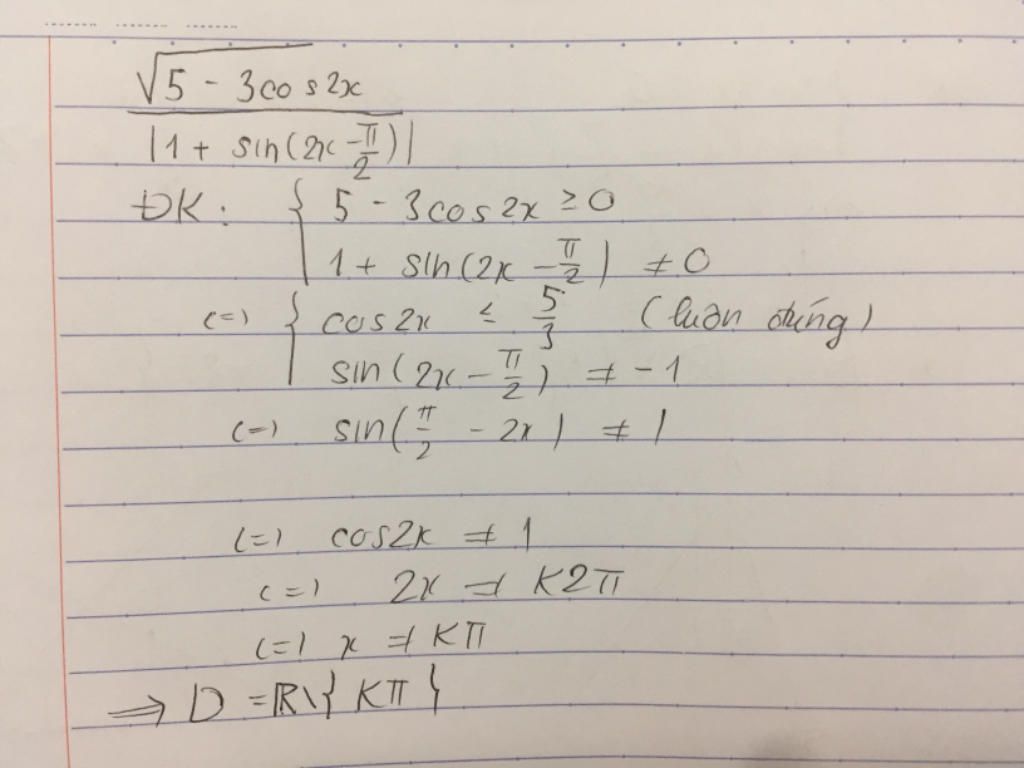 √5 - 3cos2x
|1 + sin(2x - π/2)|
ĐK: { 5 - 3cos2x ≥ 0
1 + sin(2x - π/2) ≠ 0
(=) { cos2x ≤ 5/3 (luôn đúng)
sin(2x - π/2) ≠ -1
(=) sin(π/2 - 2x) ≠ 1
(=) cos2x ≠ 1
(=) 2x ≠ K2π
(=) x ≠ Kπ
=> D = ℝ\{Kπ}